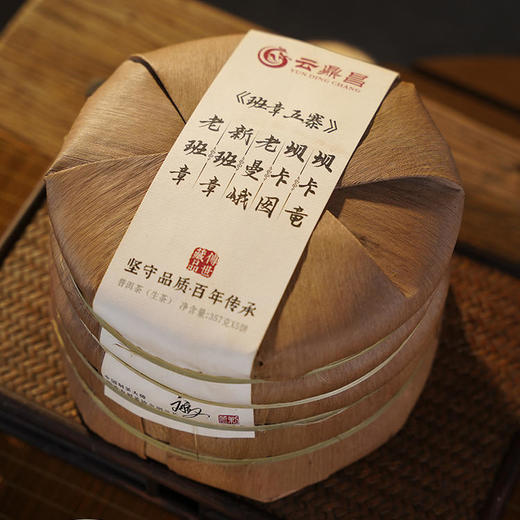 云鼎昌
YUN DING CHANG
《班章五寨》
老班章
新班章
老曼峨
坝卡囡
坝卡竜
傳世藏品
坚守品质·百年传承
普洱茶（生茶） 净含量:357克X5饼